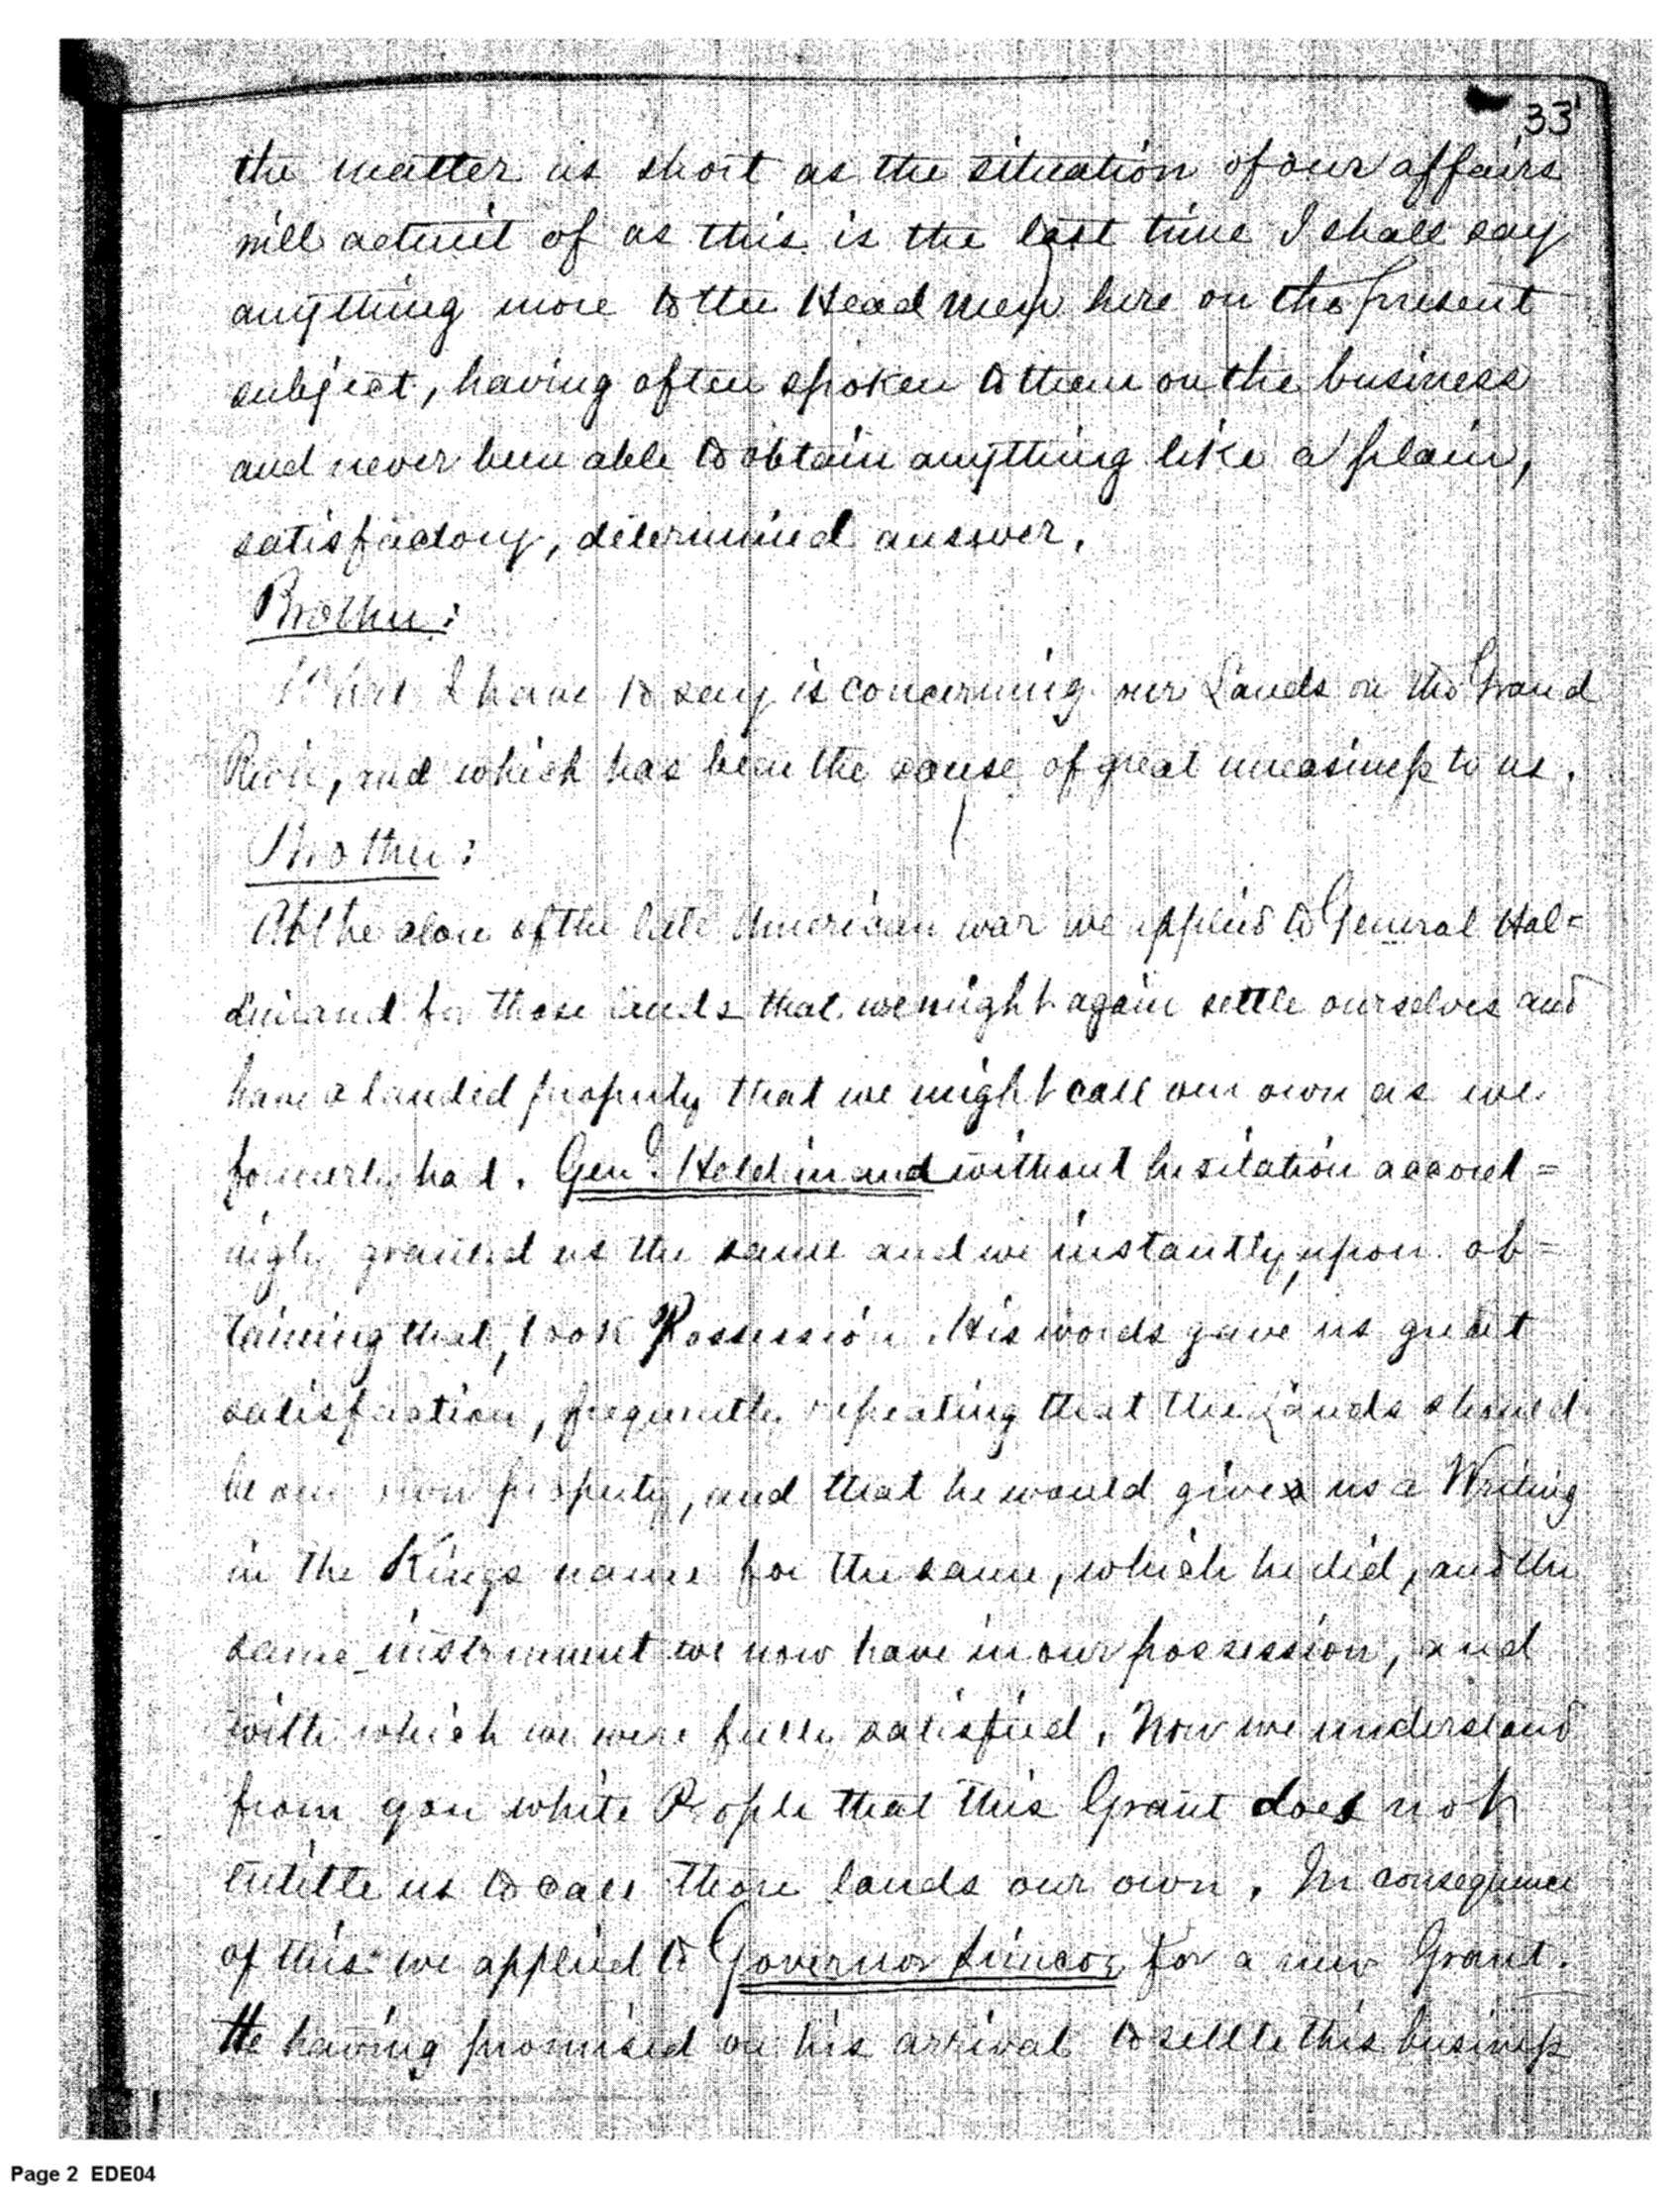 33
the matter as short as the situation of our affairs
will admit of as this is the last time I shall say
anything more to the Head Men here on the present
subject, having often spoken to them on the business
and never been able to obtain anything like a plain,
satisfactory, determined answer.
Brother:
What I have to say is concerning our Lands on the Grand
River, and which has been the cause of great uneasiness to us.
Brother:
At the close of the late American war we applied to General Hal=
dimand for those lands that we might again settle ourselves and
have a landed property that we might call our own as we
formerly had. Genl. Haldimand without hesitation accord=
ingly granted us the same and we instantly, upon ob=
taining that, took Possession. His words gave us great
satisfaction, frequently repeating that the Lands should
be our own property, and that he would give us a Writing
in the Kings name for the same, which he did, and the
same instrument we now have in our possession, and
with which we were fully satisfied. Now we understand
from you white People that this Grant does not
entitle us to call those lands our own. In consequence
of this we applied to Governor Simcoe for a new Grant.
He having promised on his arrival to settle this business
Page 2 EDE04